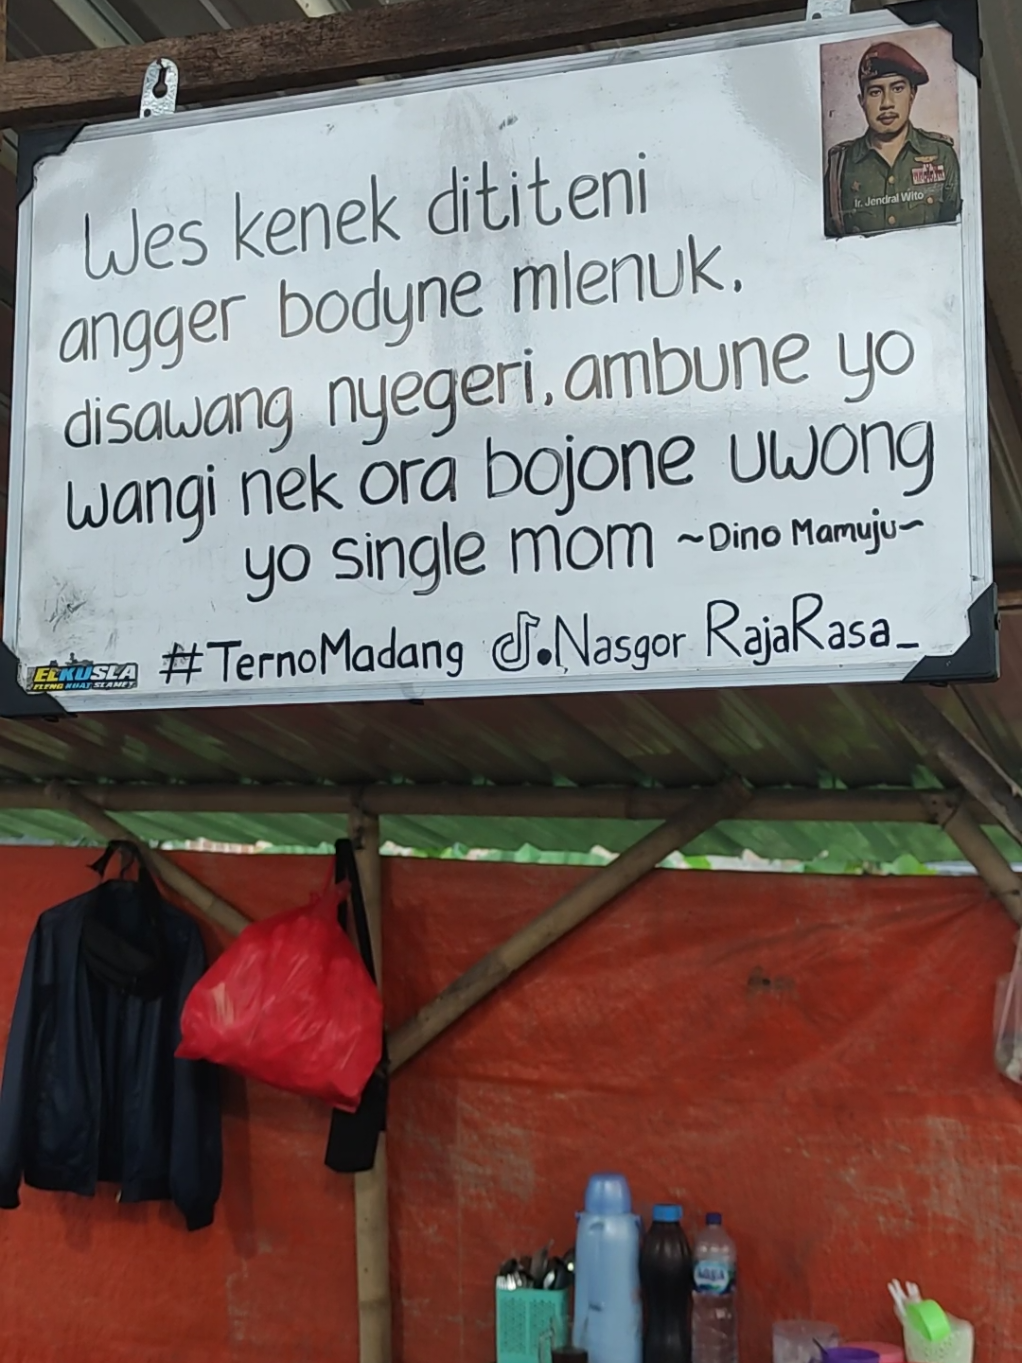 Ir. Jendral Wito
Wes kenek dititeni
angger bodyne mlenuk.
disawang nyegeri, ambune yo
wangi nek ora bojone uwong
yo single mom ~Dino Mamuju~
ELKUSLA
ELENG KUAT SLAMET
#TernoMadang Nasgor RajaRasa_
AQUA